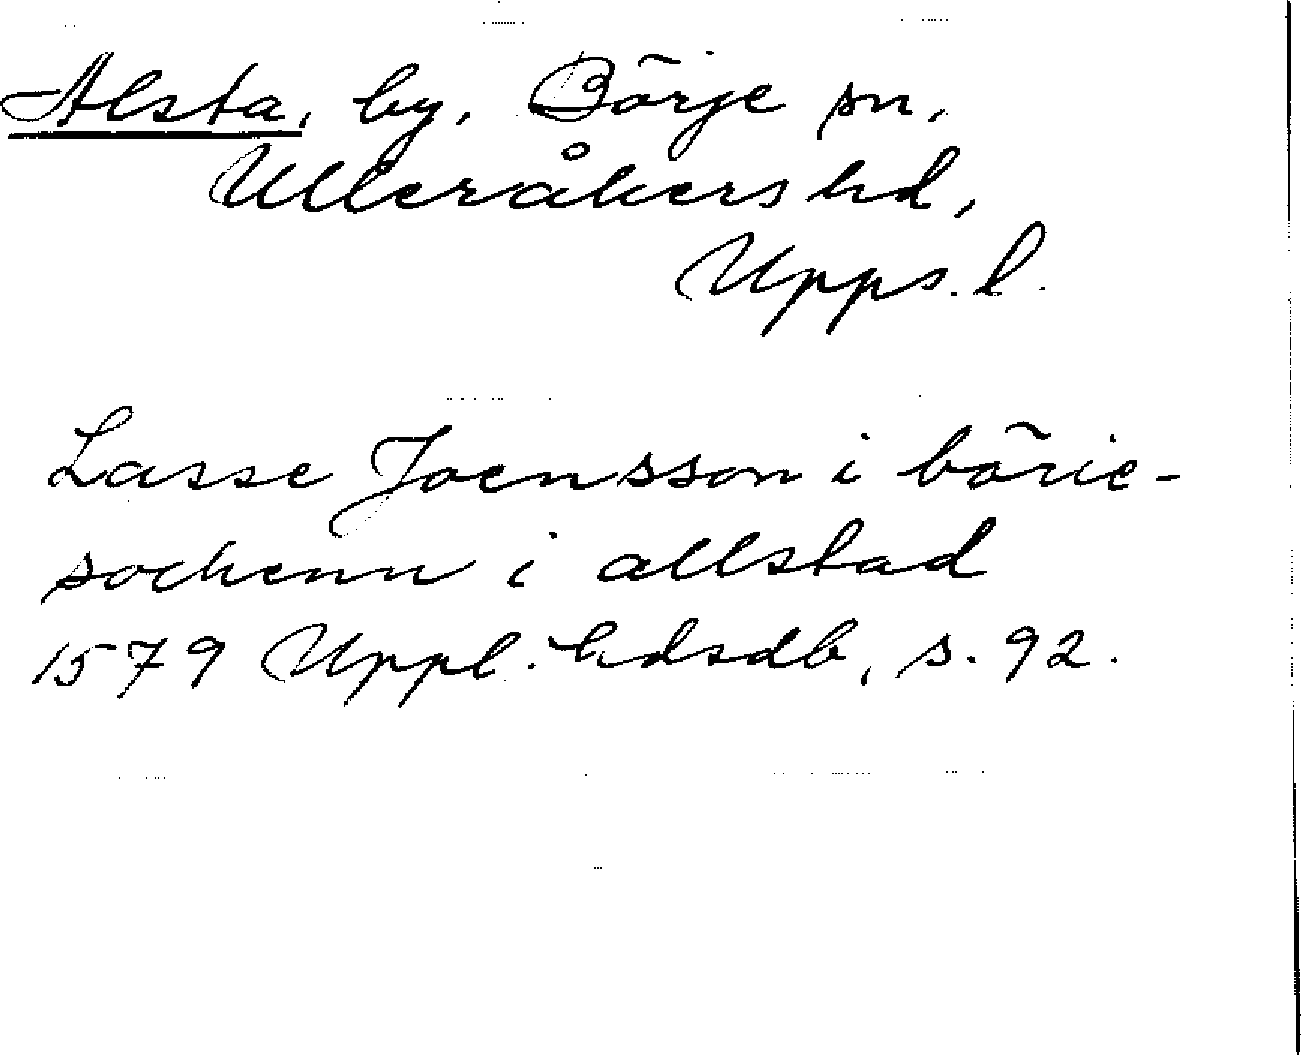 Alsta, by, Börje sn,
Ulleråkers hd,
Upps. l.
Lasse Joensson i börie-
sochenn i allstad
1579 Uppl. hdsdb, s. 92.